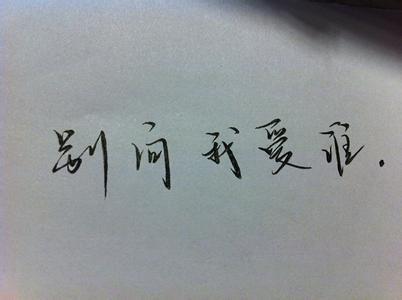 别问我爱谁.